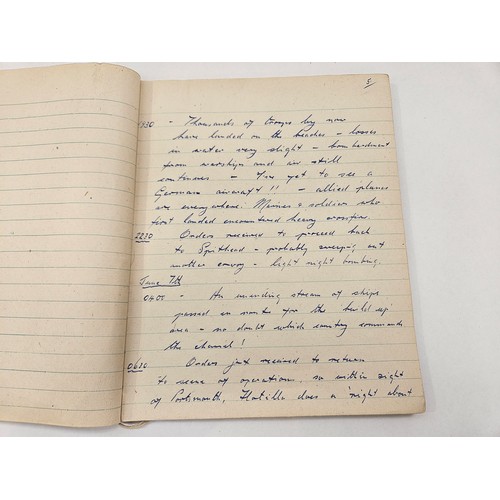 5
1930 - Thousands of troops by now
have landed on the beaches - losses
in water very slight - bombardment
from warships and air still
continues - I've yet to see a
German aircraft!! - allied planes
are everywhere. Marines & soldiers who
first landed encountered heavy crossfire.
2230 Orders received to proceed back
to Spithead - probably sweeping out
another convoy - light night bombing.
June 7th
0405 - An unending stream of ships
passed en route for the build up
area - no doubt which country commands
the channel!
0630 Orders just received to return
to scene of operations, so within sight
of Portsmouth, Flotilla does a 'right about